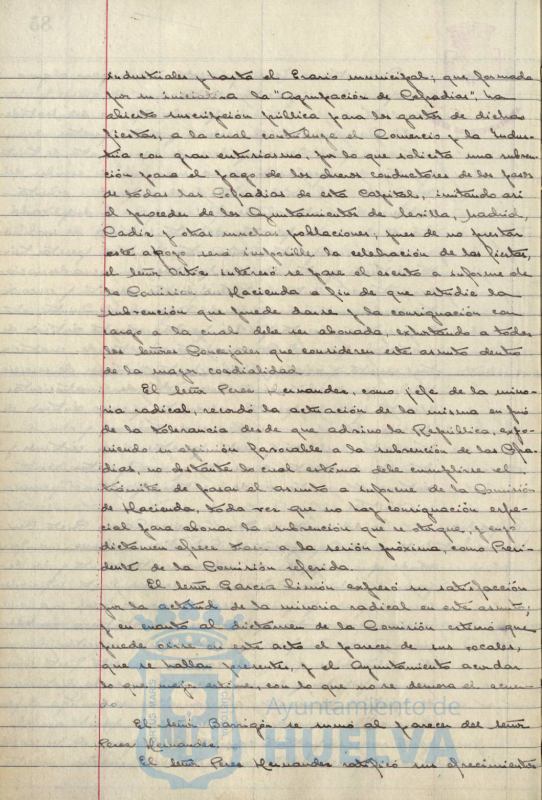 industriales y hasta el Erario municipal; que formada
por su iniciativa la "Agrupación de Cofradias", ha
abierto suscripción pública para los gastos de dichas
fiestas, a la cual contribuye el Comercio y la Indus-
tria con gran entusiasmo, por lo que solicita una subven-
ción para el pago de los obreros conductores de los pasos
de todas las Cofradias de esta Capital, imitando asi
el proceder de los Ayuntamientos de Sevilla, Madrid,
Cadiz y otras muchas poblaciones, pues de no prestar
este apoyo será imposible la celebración de las fiestas,
el señor interesó se pase el escrito a informe de
la Comisión de Hacienda a fin de que estudie la
subvención que puede darse y la consignación con
cargo a la cual debe ser abonada, exhortando a todos
los señores Concejales que consideren este asunto dentro
de la mayor cordialidad.
El señor Perez Hernandez, como jefe de la mino-
ria radical, recordó la actuación de la misma en pró
de la tolerancia desde que advino la República, expo-
niendo su opinión favorable a la subvención de las Cofra-
dias, no obstante lo cual estima debe cumplirse el
trámite de pasar el asunto a informe de la Comisión
de Hacienda, toda vez que no hay consignación espe-
cial para abonar la subvención que se otorgue, y cuyo
dictamen ofrece traer a la sesión próxima, como Presi-
dente de la Comisión referida.
El señor Garcia Limón expresó su satisfacción
por la actitud de la minoria radical en este asunto;
y en cuanto al dictamen de la Comisión estimó que
puede oirse en este acto el parecer de sus vocales,
que se hallan presentes, y el Ayuntamiento acordar
lo que mejor estime, con lo que no se demora el acuer-
do.
El señor Barrigón se sumó al parecer del señor
Perez Hernandez.
El señor Perez Hernandez ratificó sus ofrecimientos
Ayuntamiento de
HUELVA